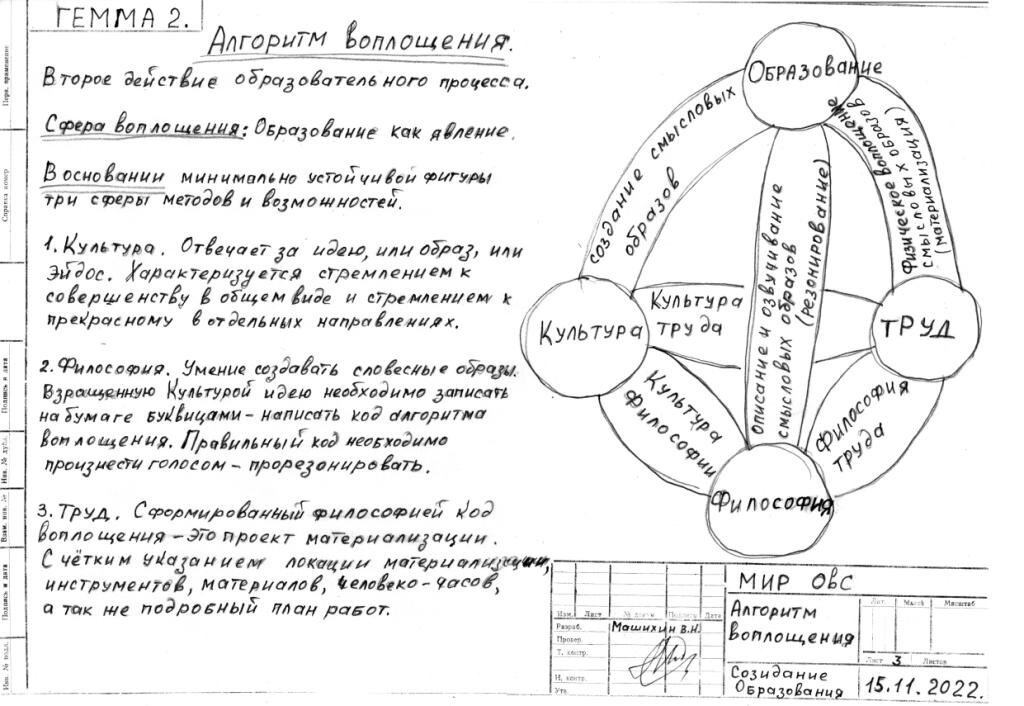 ГЕММА 2.
Алгоритм воплощения.
Второе действие образовательного процесса.
Сфера воплощения: Образование как явление.
В основании минимально устойчивой фигуры
три сферы методов и возможностей.
1. Культура. Отвечает за идею, или образ, или
Эйдос. Характеризуется стремлением к
совершенству в общем виде и стремлением к
прекрасному в отдельных направлениях.
2. Философия. Умение создавать словесные образы.
Взращенную Культурой идею необходимо записать
на бумаге буквицами – написать код алгоритма
воплощения. Правильный код необходимо
произнести голосом – прорезонировать.
3. Труд. Сформированный философией код
воплощения – это проект материализации.
С чётким указанием локации материализации,
инструментов, материалов, человеко-часов,
а так же подробный план работ.
Образование
создание смысловых
образов
описание и озвучивание
смысловых образов
(резонирование)
физическое воплощение
смысловых образов
(материализация)
Культура
Культура
труда
ТРУД
Культура
философии
Философия
труда
Философия
Перв. применение
Справка номер
Подпись и дата
Инв. № дубл.
Взам. инв. №
Подпись и дата
Инв. № подл.
Изм. Лист № докум. Подпись Дата
Разраб. Машихин В.Н.
Провер.
Т. контр.
Н. контр.
Утв.
МИР ОвС
Алгоритм
воплощения
Лит. Масса Масштаб
Лист 3 Листов
Созидание
Образования
15.11.2022.